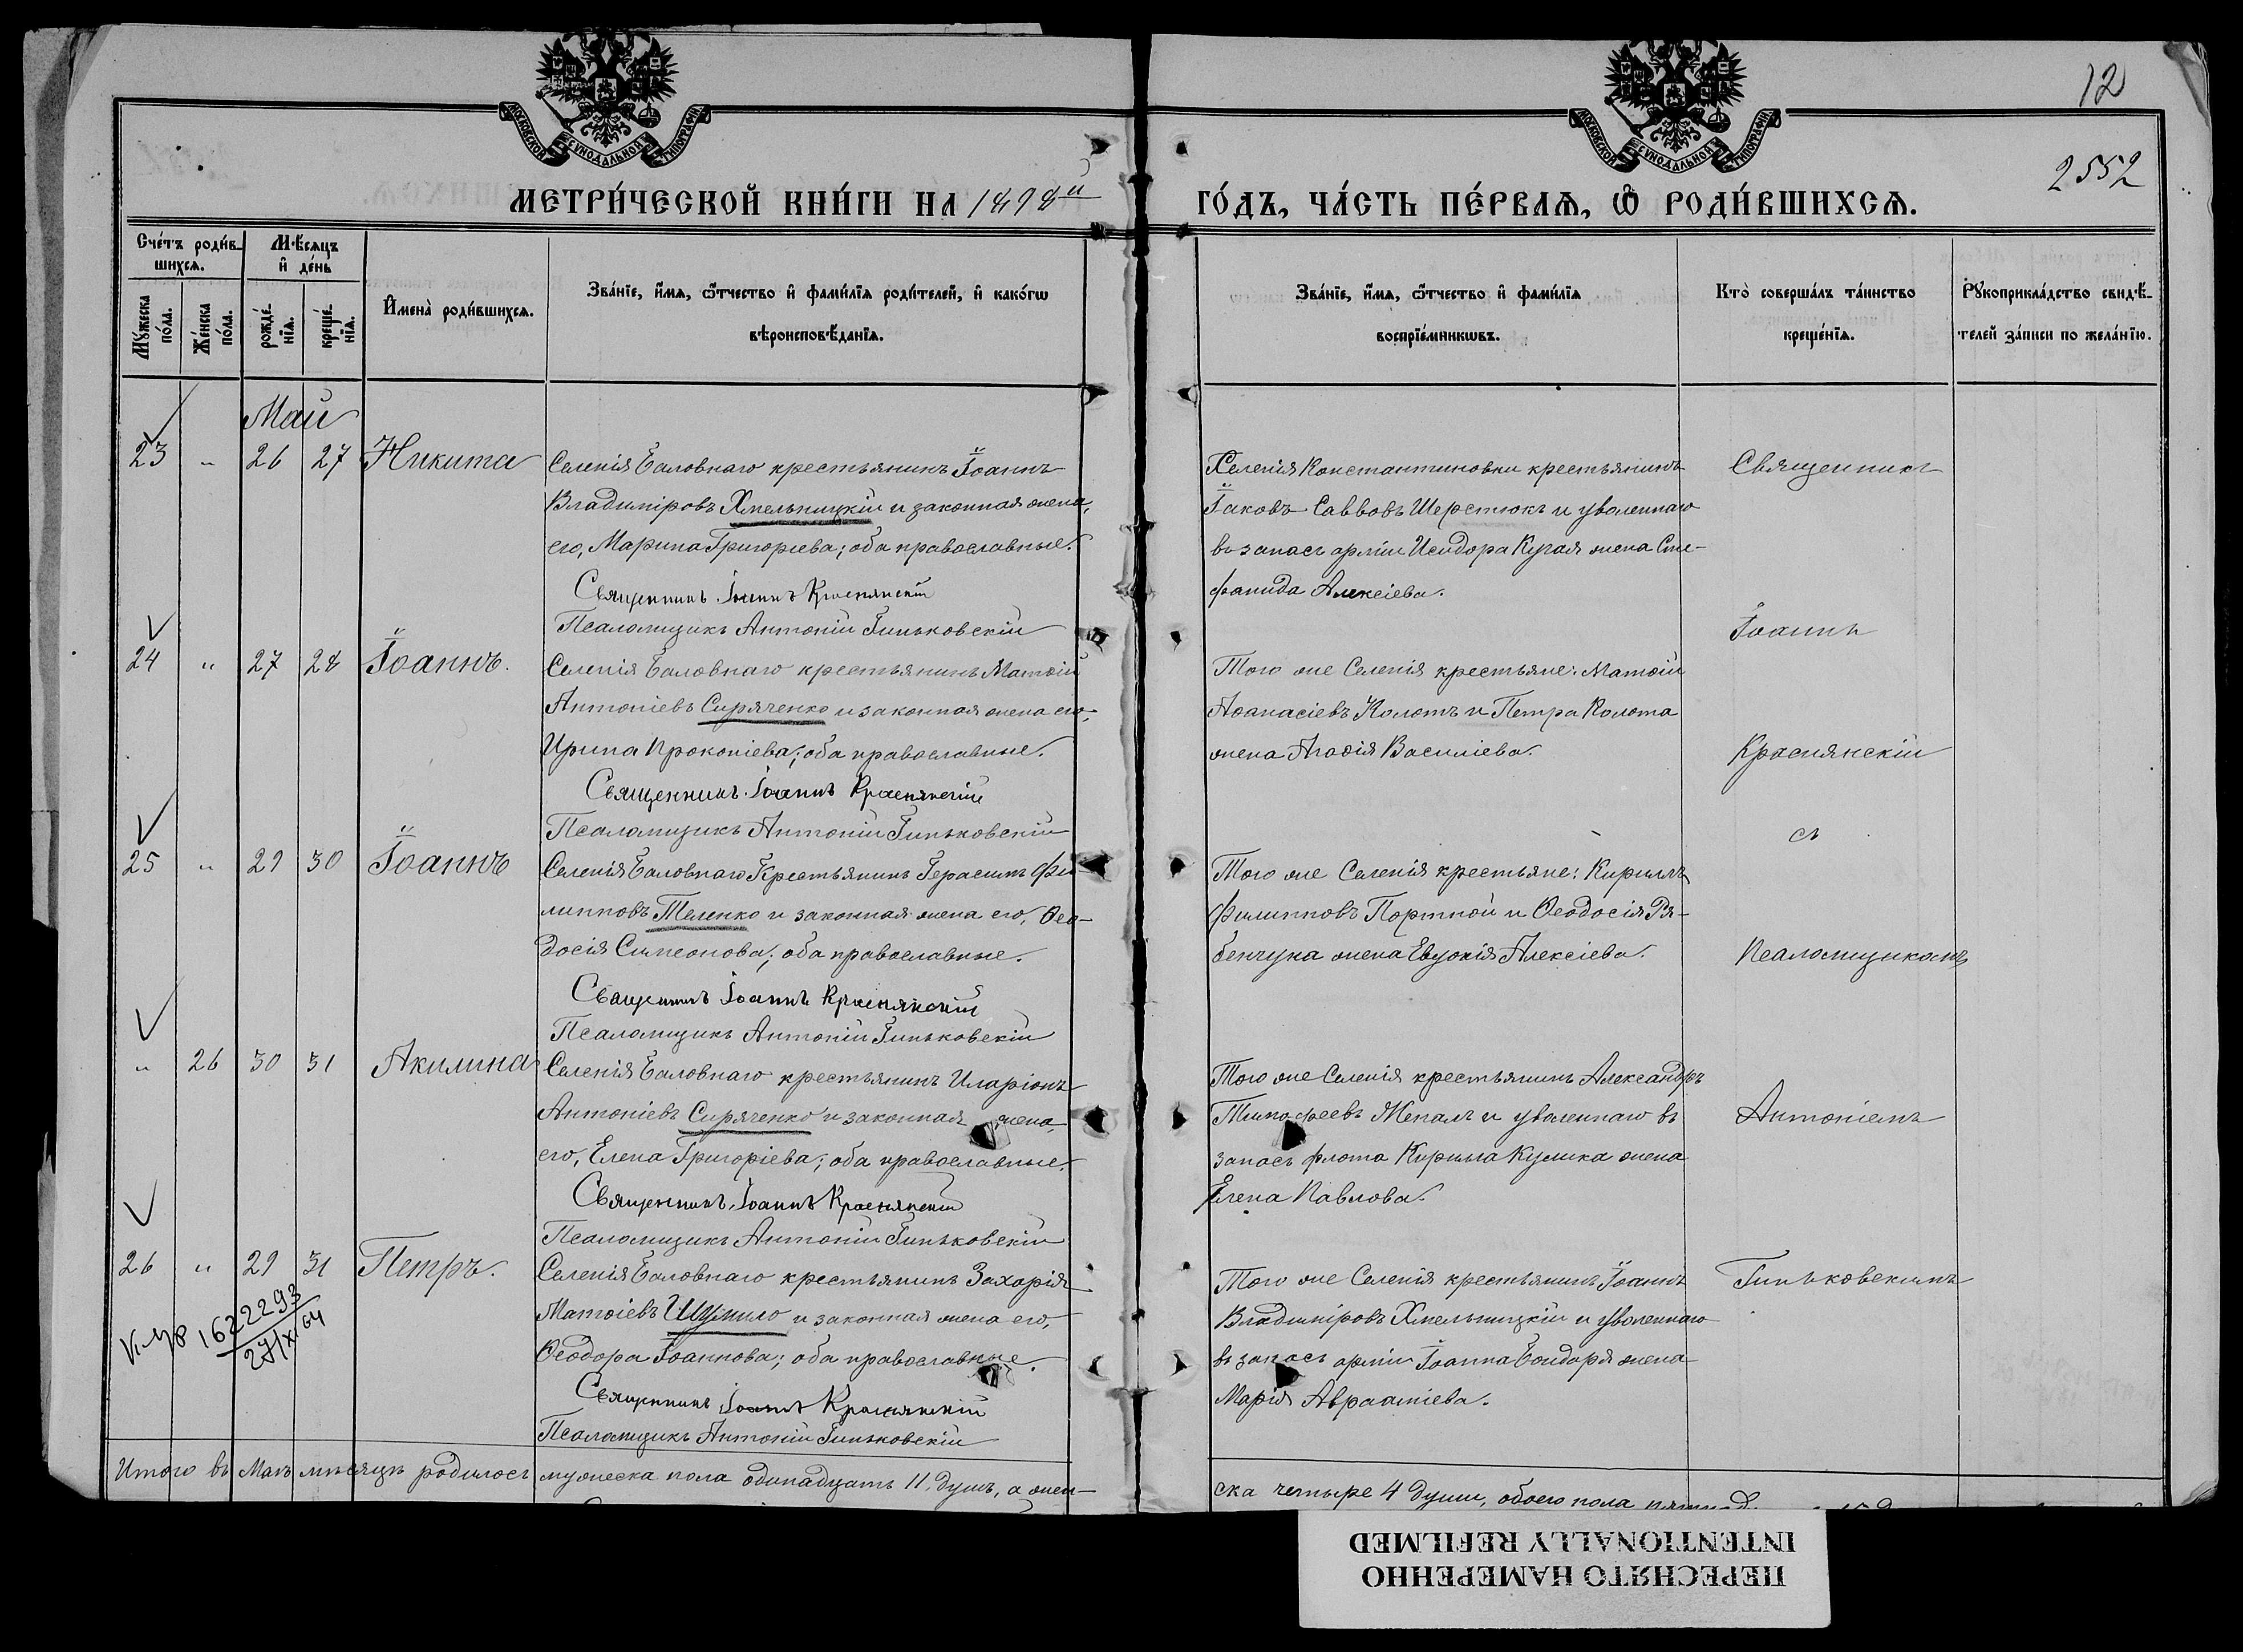 12
2552
МОСКОВСКОЙ СѴНОДАЛЬНОЙ ТИПОГРАФІИ
МОСКОВСКОЙ СѴНОДАЛЬНОЙ ТИПОГРАФІИ
МЕТРИ́ЧЕСКОЙ КНИ́ГИ НА 1898й ГО́ДЪ, ЧА́СТЬ ПЕ́РВАЯ, Ѽ РОДИ́ВШИХСЯ.
Сче́тъ роди́в-
шихся.
Мѣ́сяцъ
и҆ де́нь
Мꙋ́жеска
по́ла.
Же́нска
по́ла.
рожде́-
нїя.
креще́-
нїя.
И҆мена̀ роди́вшихся.
Зва́нїе, и҆́мя, ѻ҆́тчество и҆ фами́лїя роди́телей, и҆ како́гѡ
вѣроисповѣ́данїя.
Зва́нїе, и҆́мя, ѻ҆́тчество и҆ фами́лїя
воспрїе́мникѡвъ.
Кто̀ соверша́лъ та́инство
креще́нїя.
Рꙋкоприкла́дство свидѣ́-
телей за́писи по жела́нїю.
Май
23 " 26 27 Никита
Селенія Баловнаго крестьянинъ Іоаннъ
Владиміровъ Хмельницкій и законная жена
его, Марина Григоріева; оба православные.
Священникъ Іоаннъ Краснянскій
Псаломщикъ Антоній Гиньковскій
Селенія Константиновки крестьянинъ
Іаковъ Саввовъ Шерстюкъ и уволеннаго
въ запасъ арміи Исидора Кугая жена Сте-
фанида Алексіева.
24 " 27 28 Іоаннъ.
Селенія Баловнаго крестьянинъ Матѳій
Антоніевъ Сиряченко и законная жена его,
Ирина Прокопіева; оба православные.
Священникъ Іоаннъ Краснянскій
Псаломщикъ Антоній Гиньковскій
Того же Селенія крестьяне: Матѳій
Аѳанасіевъ Колотъ и Петра Колота
жена Агаѳія Василіева.
25 " 29 30 Іоаннъ
Селенія Баловнаго Крестьянинъ Герасимъ Фи
липповъ Теленко и законная жена его, Ѳео-
досія Симеонова; оба православные.
Священникъ Іоаннъ Краснянскій
Псаломщикъ Антоній Гиньковскій
Того же Селенія крестьяне: Кириллъ
Филипповъ Портной и Ѳеодосія Ря-
бенчука жена Евдокія Алексіева.
" 26 30 31 Акилина
Селенія Баловнаго крестьянинъ Иларіонъ
Антоніевъ Сиряченко и законная жена
его, Елена Григоріева; оба православные.
Священникъ Іоаннъ Краснянскій
Псаломщикъ Антоній Гиньковскій
Того же Селенія крестьянинъ Александръ
Тимофеевъ Жепалъ и уволеннаго въ
запасъ флота Кирила Кулика жена
Елена Павлова.
26 " 29 31 Петръ.
1622293
27/XI 64
Селенія Баловнаго крестьянинъ Захарія
Матѳіевъ Шумило и законная жена его,
Ѳеодора Іоаннова; оба православные.
Священникъ Іоаннъ Краснянскій
Псаломщикъ Антоній Гиньковскій
Того же Селенія крестьянинъ Іоаннъ
Владиміровъ Хмельницкій и уволеннаго
въ запасъ арміи Іоанна Бондаря жена
Марія Авраамiева.
Священникъ
Іоаннъ
Краснянскій
съ
Псаломщикомъ
Антоніемъ
Гиньковскимъ
Итого въ Маѣ мѣсяцѣ родилось мужеска пола одинадцать 11. душъ, а жен-
ска четыре 4 души, обоего пола
ПЕРЕСНЯТО НАМЕРЕННО
INTENTIONALLY REFILMED